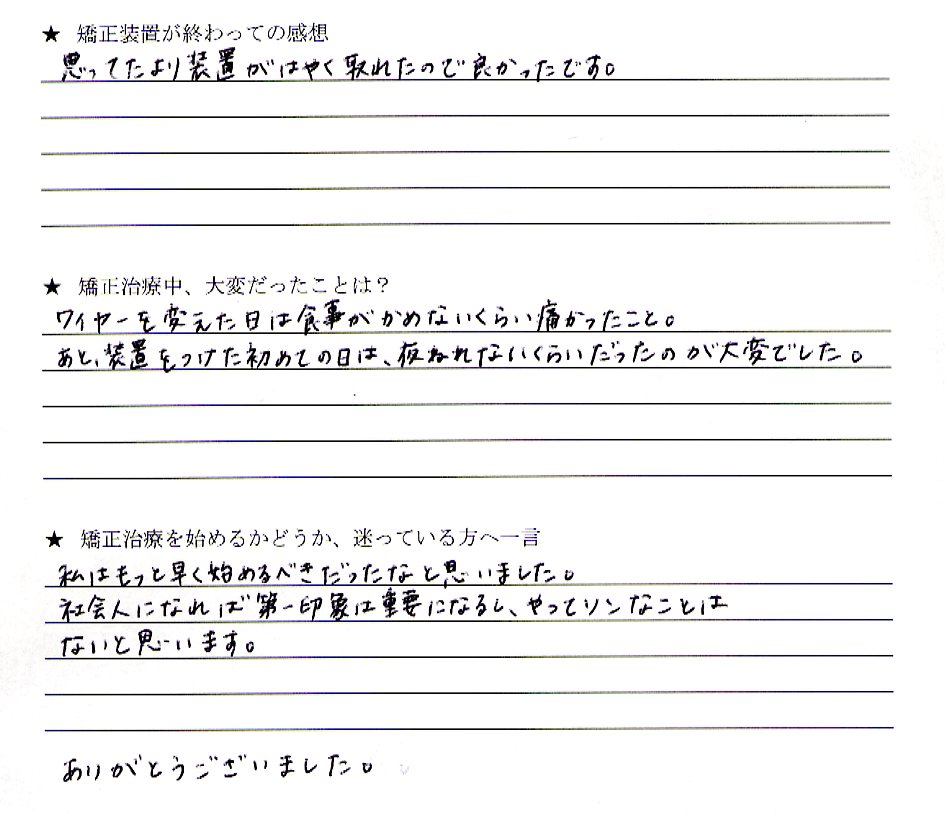 ★ 矯正装置が終わっての感想
思ってたより装置がはやく取れたので良かったです。
★ 矯正治療中、大変だったことは？
ワイヤーを変えた日は食事がかめないくらい痛かったこと。
あと、装置をつけた初めての日は、夜ねれないくらいだったのが大変でした。
★ 矯正治療を始めるかどうか、迷っている方へ一言
私はもっと早く始めるべきだったなと思いました。
社会人になれば第一印象は重要になるし、やってソンなことは
ないと思います。
ありがとうございました。